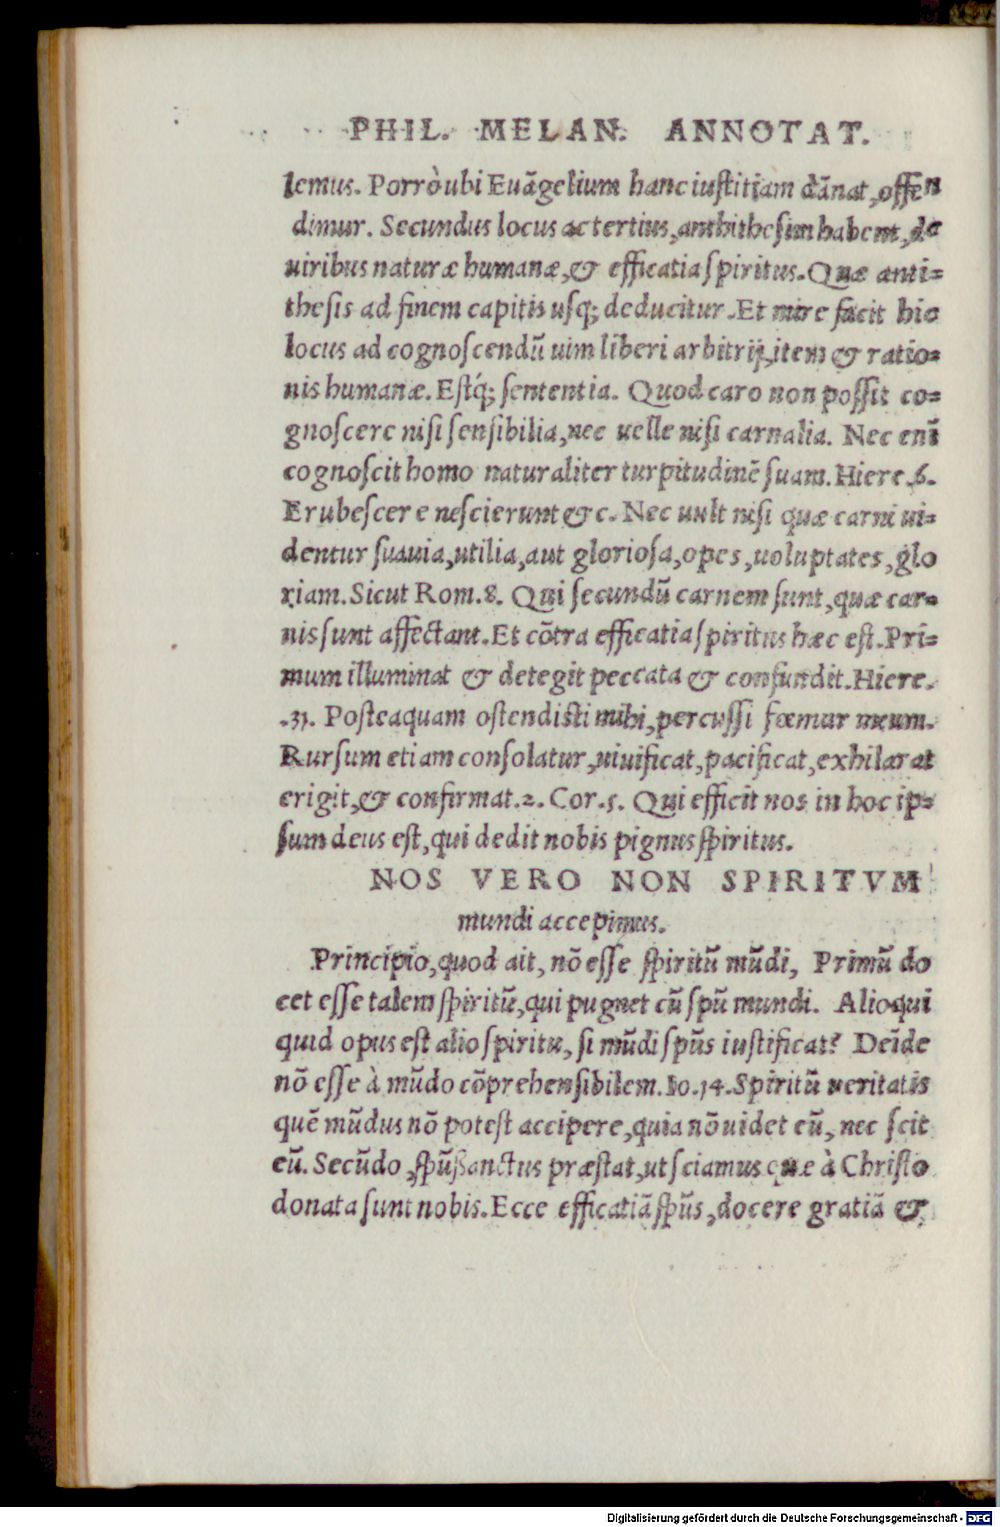 PHIL. MELAN. ANNOTAT.
lemus. Porrò ubi Euãgelium hanc iustitiam dãnat, offen
dimur. Secundus locus ac tertius, anthithesim habent, de
uiribus naturæ humanæ, & efficatia spiritus. Quæ anti=
thesis ad finem capitis usq; deducitur. Et mire facit hic
locus ad cognoscendũ uim liberi arbitrij, item & ratio=
nis humanæ. Estq́; sententia. Quod caro non possit co=
gnoscere nisi sensibilia, nec uelle nisi carnalia. Nec enĩ
cognoscit homo naturaliter turpitudinẽ suam. Hiere. 6.
Erubescere nescierunt &c. Nec uult nisi quæ carni ui=
dentur suauia, utilia, aut gloriosa, opes, uoluptates, glo
riam. Sicut Rom. 8. Qui secundũ carnem sunt, quæ car=
nis sunt affectant. Et cõtra efficatia spiritus hæc est. Pri=
mum illuminat & detegit peccata & confundit. Hiere.
.31. Posteaquam ostendisti mihi, percussi fœmur meum.
Rursum etiam consolatur, uiuificat, pacificat, exhilarat
erigit, & confirmat. 2. Cor. 5. Qui efficit nos in hoc ip=
sum deus est, qui dedit nobis pignus spiritus.
NOS VERO NON SPIRITVM
mundi accepimus.
Principio, quod ait, nõ esse spiritũ mũdi, Primũ do
cet esse talem spiritũ, qui pugnet cũ spũ mundi. Alioqui
quid opus est alio spiritu, si mũdi spũs iustificat? Deĩde
nõ esse à mũdo cõprehensibilem. Io. 14. Spiritũ ueritatis
quẽ mũdus nõ potest accipere, quia nõ uidet eũ, nec scit
eũ. Secũdo, spũssanctus præstat, ut sciamus quæ à Christo
donata sunt nobis. Ecce efficatiã spũs, docere gratiã &
Digitalisierung gefördert durch die Deutsche Forschungsgemeinschaft - DFG